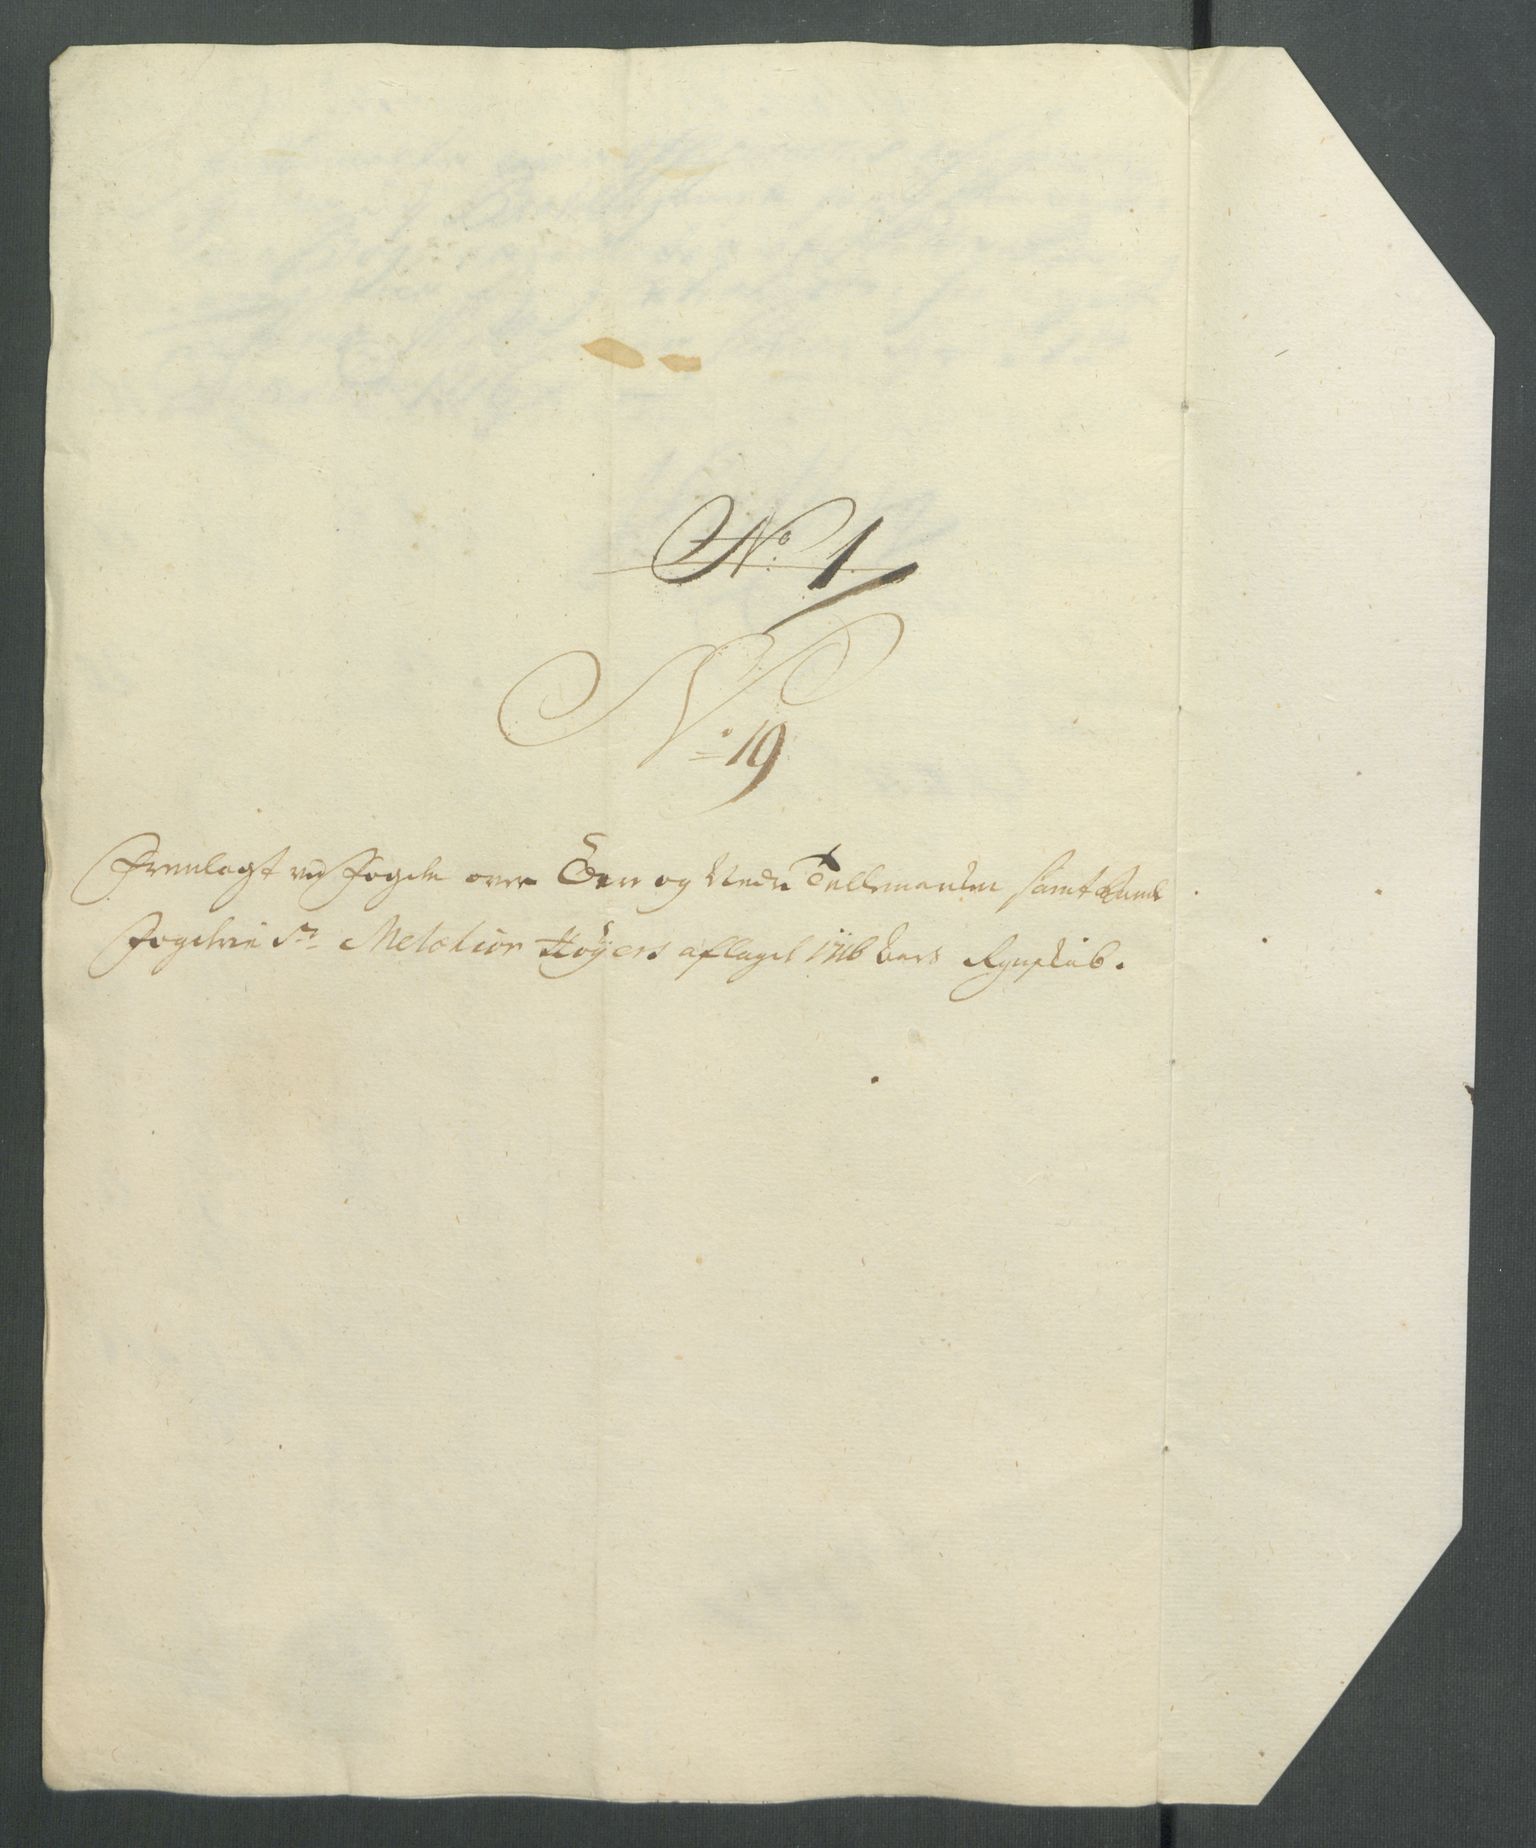 No 1
No 19
Fremlagt ved Fogden over Öwre og Nedre Tellemarken samt Bamble
Fogderie Sr. Melchior Höyers aflagde 1716 Aars Regnskab.